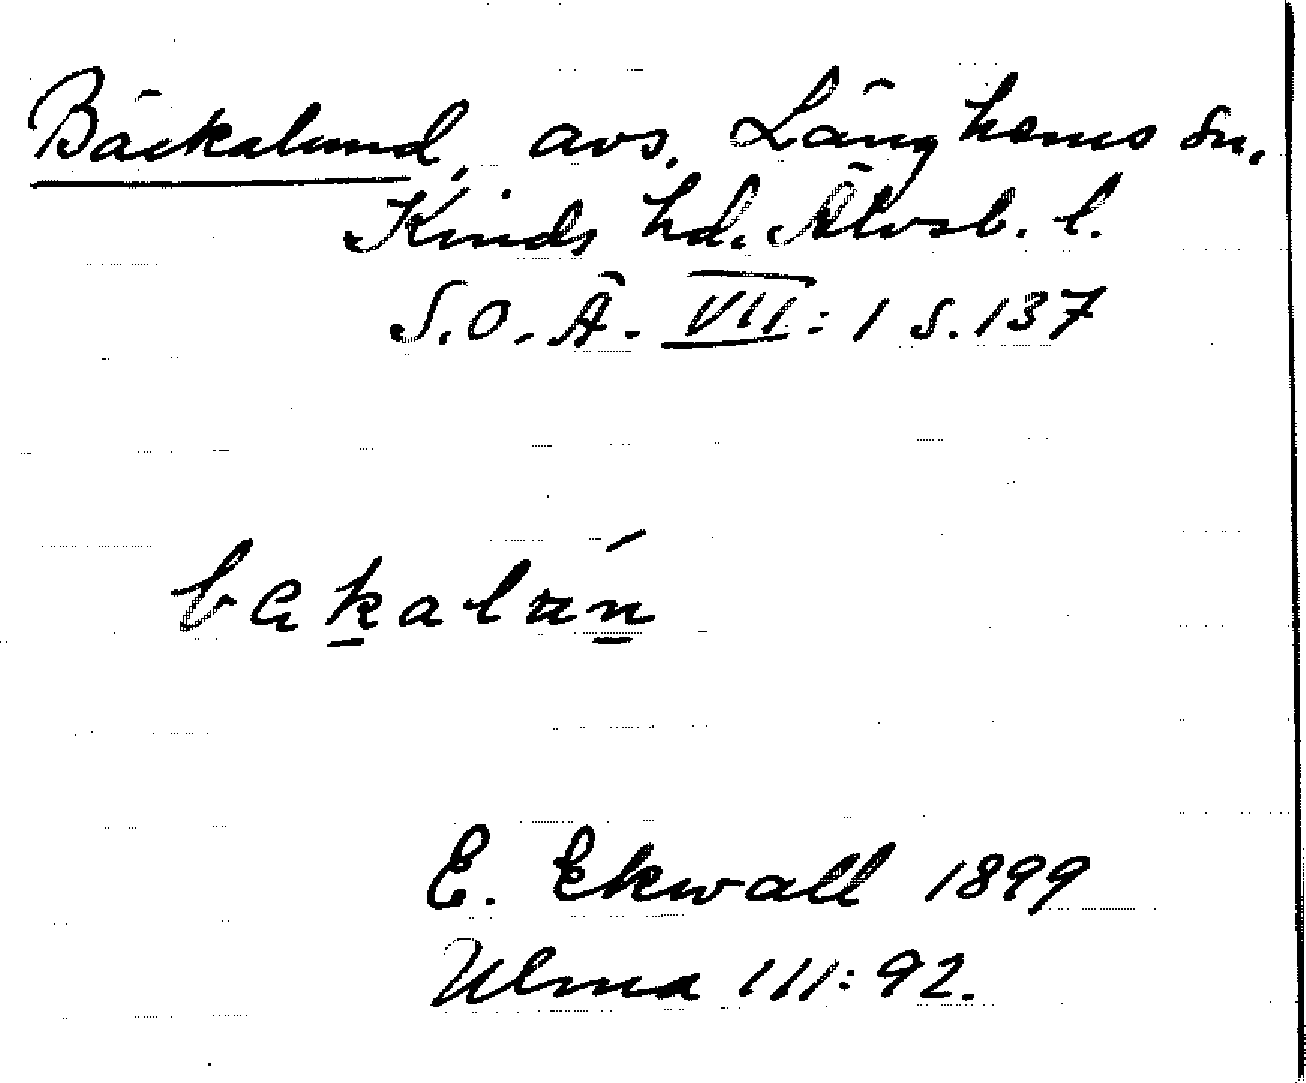 Bäckalund, avs. Länghems sn.
Kinds hd. Älvsb. l.
S.O.Ä. VII: 1 s. 137
bakalun
E. Ekwall 1899
Ulma 111: 92.